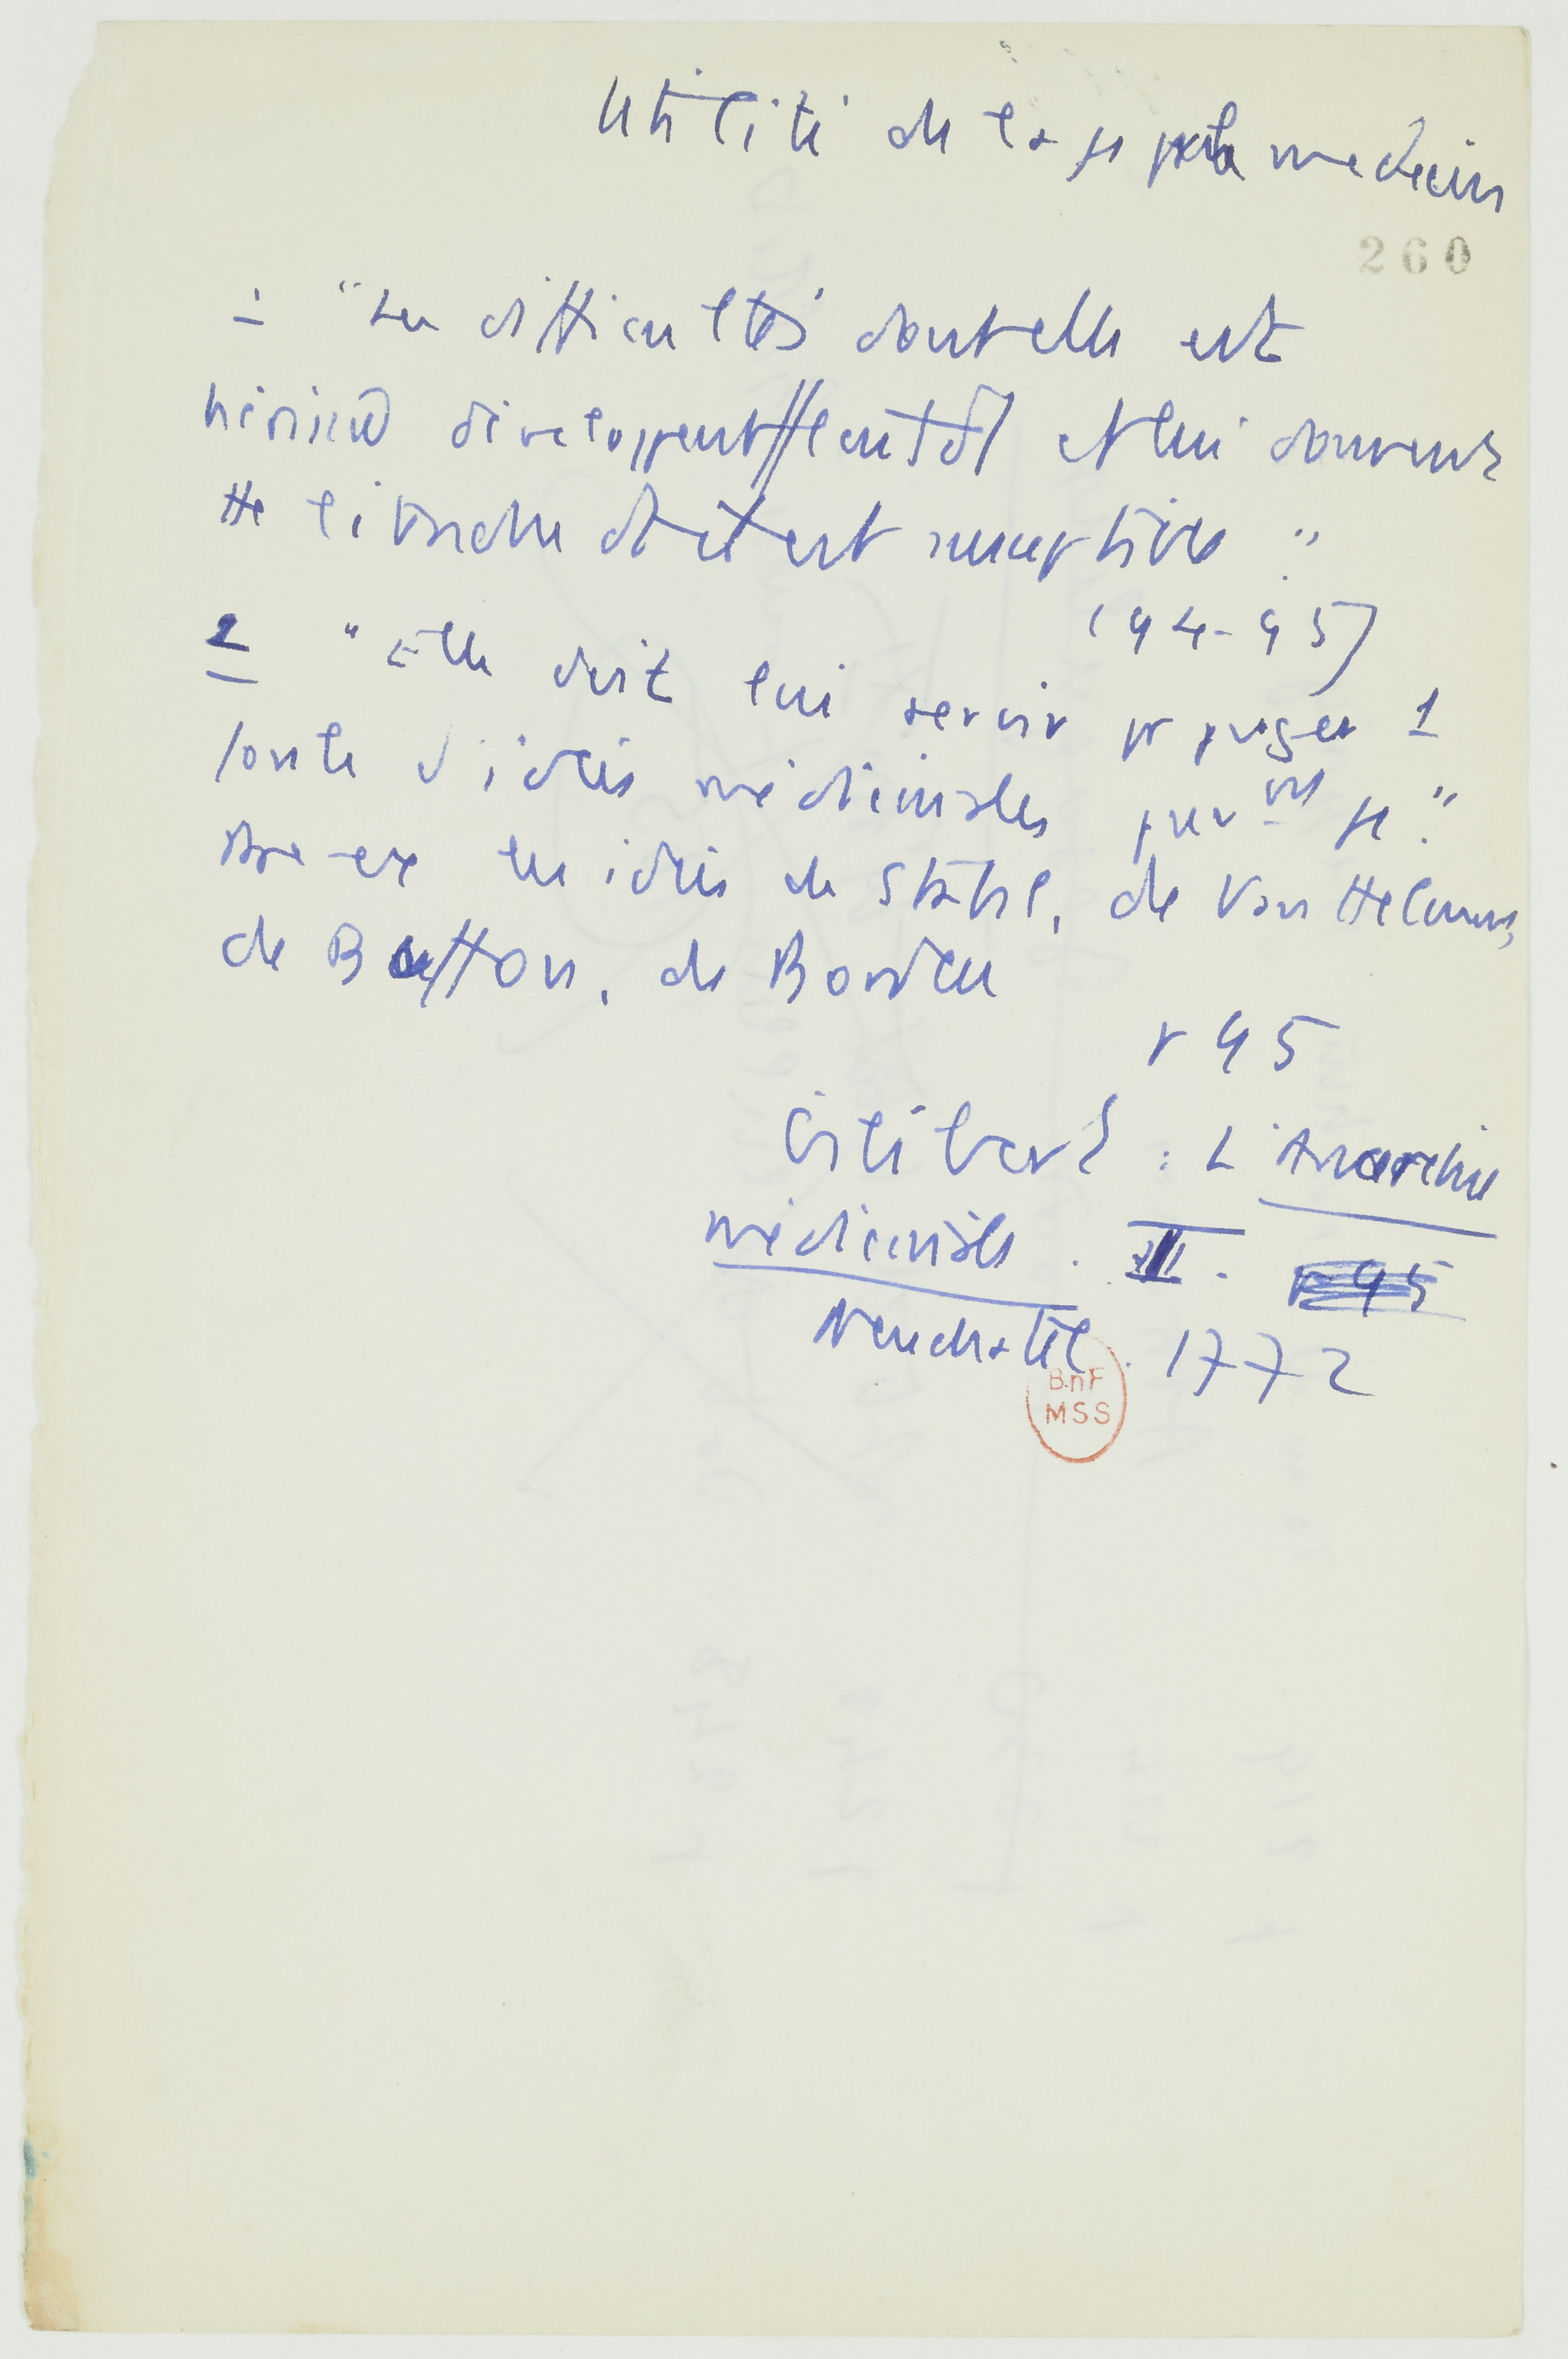 Utilité de la φ pr le medecin
260
1 "Les difficultés dont elle est
hérissée développent l'entdt et lui donnent
tte l'étendue dt il est susceptible."
(94-95)
2 "Elle doit lui servir pr juger 1
foule d'idées médicinales purmt φ."
Par ex les idées de Stahl, de Van Helmont,
de Buffon, de Bordeu
p 95
Gilibert : L'Anarchie
médicinale. II.
Neuchatel. 1772
BnF
MSS